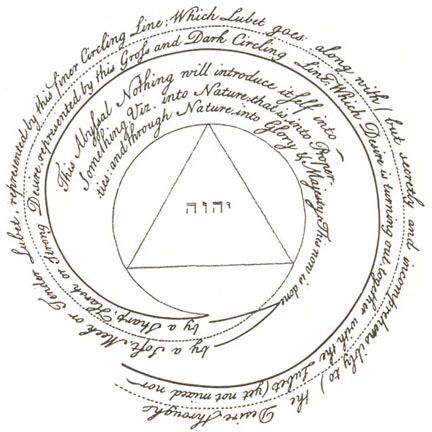 This Abyſsal Nothing will introduce itſelf into
Something, Viz. into Nature, that is into Proper-
ties: and through Nature, into Glory & Majesty. This now is done
by a Sharp, Harsh or Strong Desire, represented by this Groſs and Dark Circling Line, Which Desire is turning out together with the Lubet (yet not mixed nor
by a Soft, Meek or Tender Lubet represented by this finer Circling Line: Which Lubet goes along with (but secretly and incomprehensibly to) the Desire through
יהוה